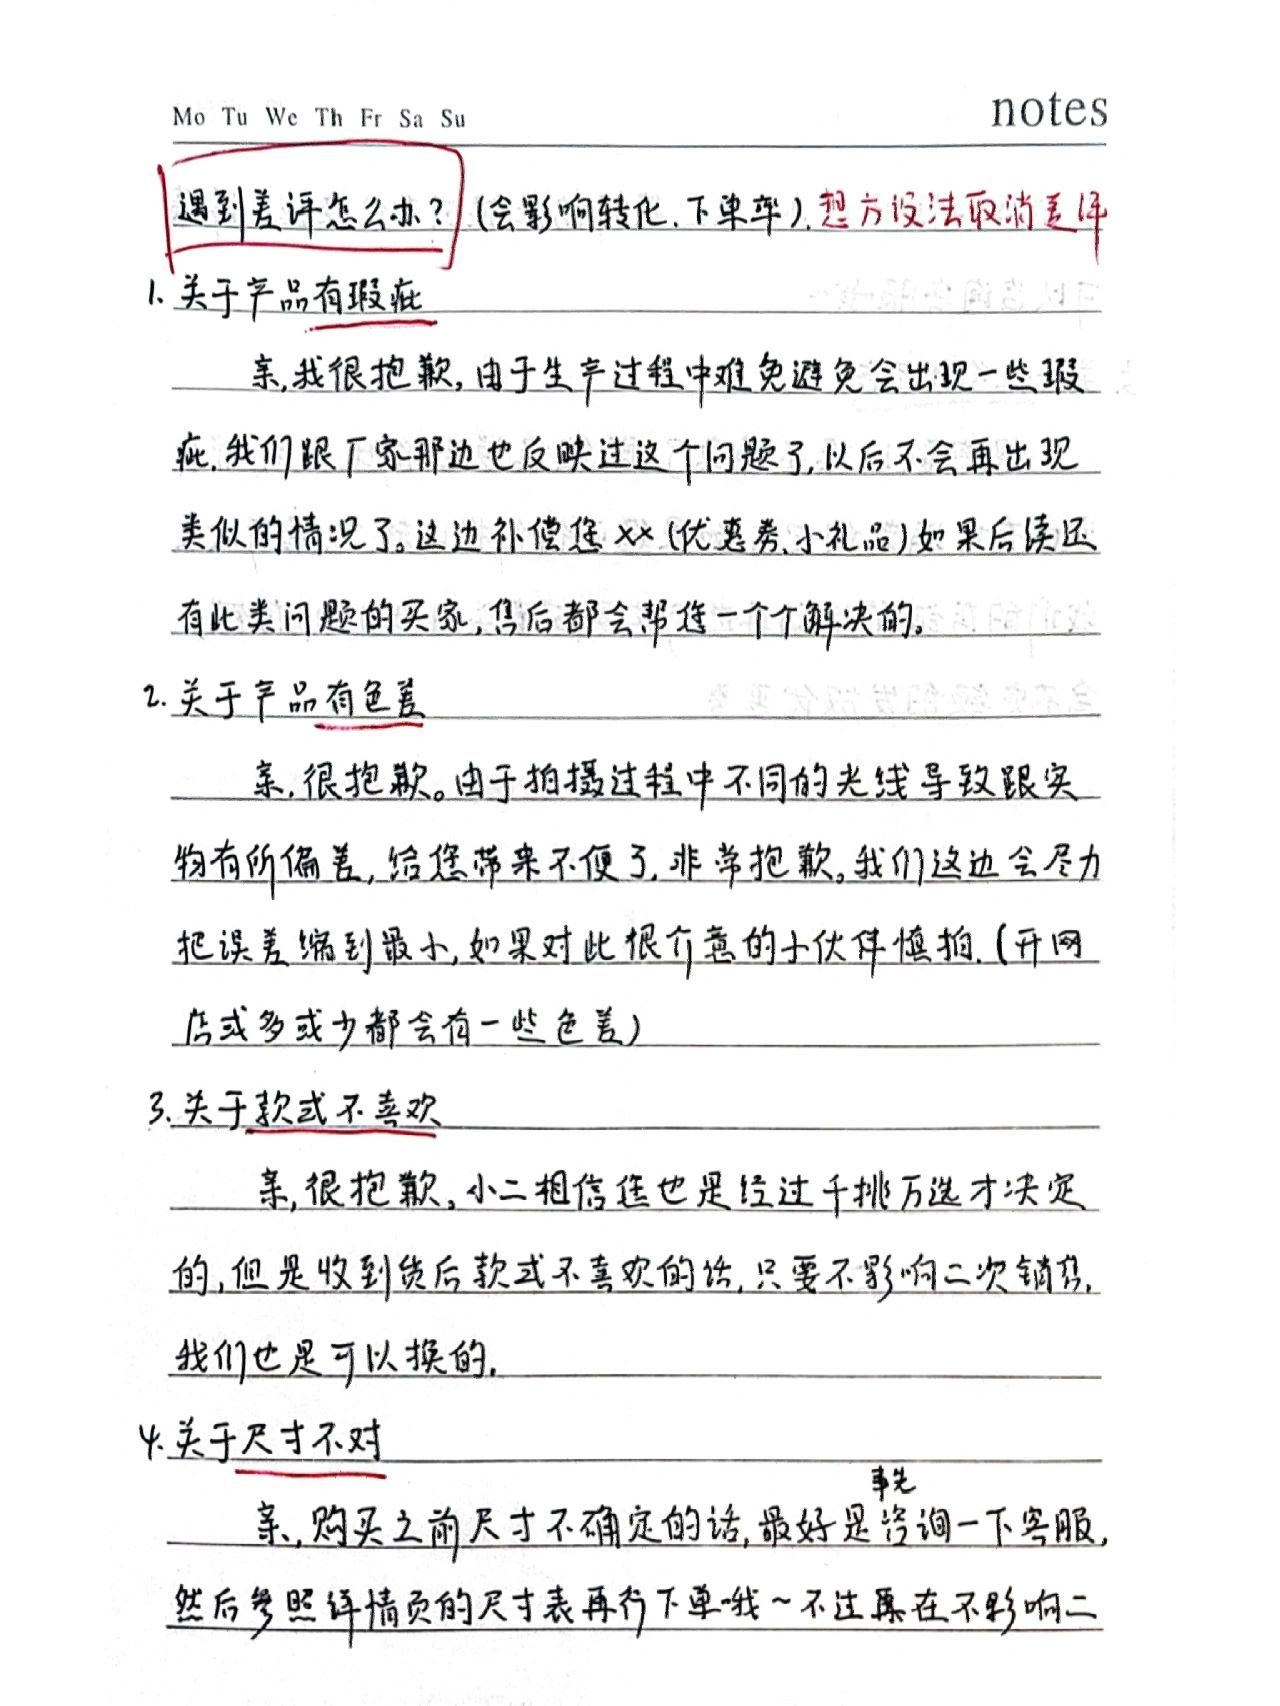 Mo Tu We Th Fr Sa Su notes
遇到差评怎么办？(会影响转化、下单率).想方设法取消差评
1. 关于产品有瑕疵
亲,我很抱歉,由于生产过程中难免避免会出现一些瑕
疵.我们跟厂家那边也反映过这个问题了,以后不会再出现
类似的情况了。这边补偿您xx(优惠券、小礼品)如果后续还
有此类问题的买家,售后都会帮您一个个解决的。
2. 关于产品有色差
亲.很抱歉。由于拍摄过程中不同的光线导致跟实
物有所偏差,给您带来不便了.非常抱歉。我们这边会尽力
把误差缩到最小,如果对此很介意的小伙伴慎拍.(开网
店或多或少都会有一些色差)
3. 关于款式不喜欢
亲,很抱歉。小二相信您也是经过千挑万选才决定
的,但是收到货后款式不喜欢的话,只要不影响二次销售,
我们也是可以换的.
4. 关于尺寸不对
事先
亲,购买之前尺寸不确定的话,最好是咨询一下客服,
然后参照详情页的尺寸表再行下单哦~不过在不影响二